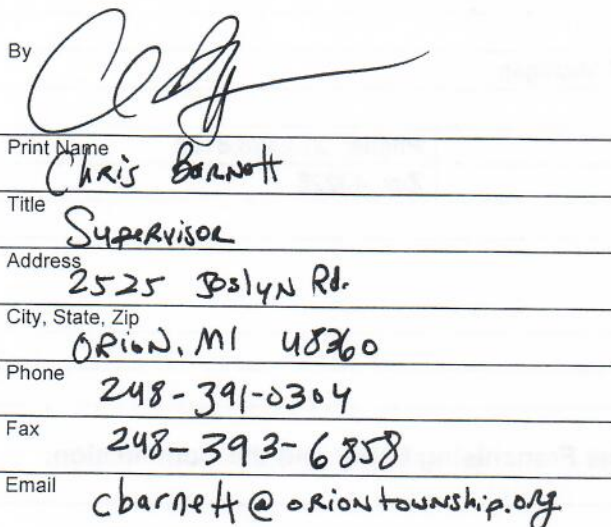 By
Print Name
Chris Barnett
Title
Supervisor
Address
2525 Joslyn Rd.
City, State, Zip
Orion, MI 48360
Phone
248-391-0304
Fax
248-393-6858
Email
cbarnett@oriontownship.org